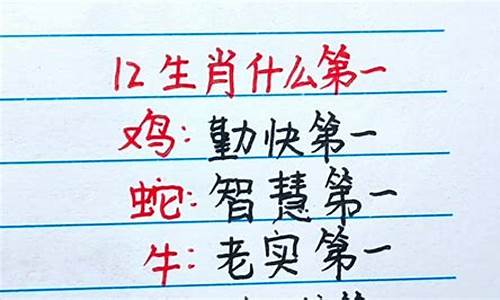 12生肖什么第一
鸡:勤快第一
蛇:智慧第一
牛:老实第一